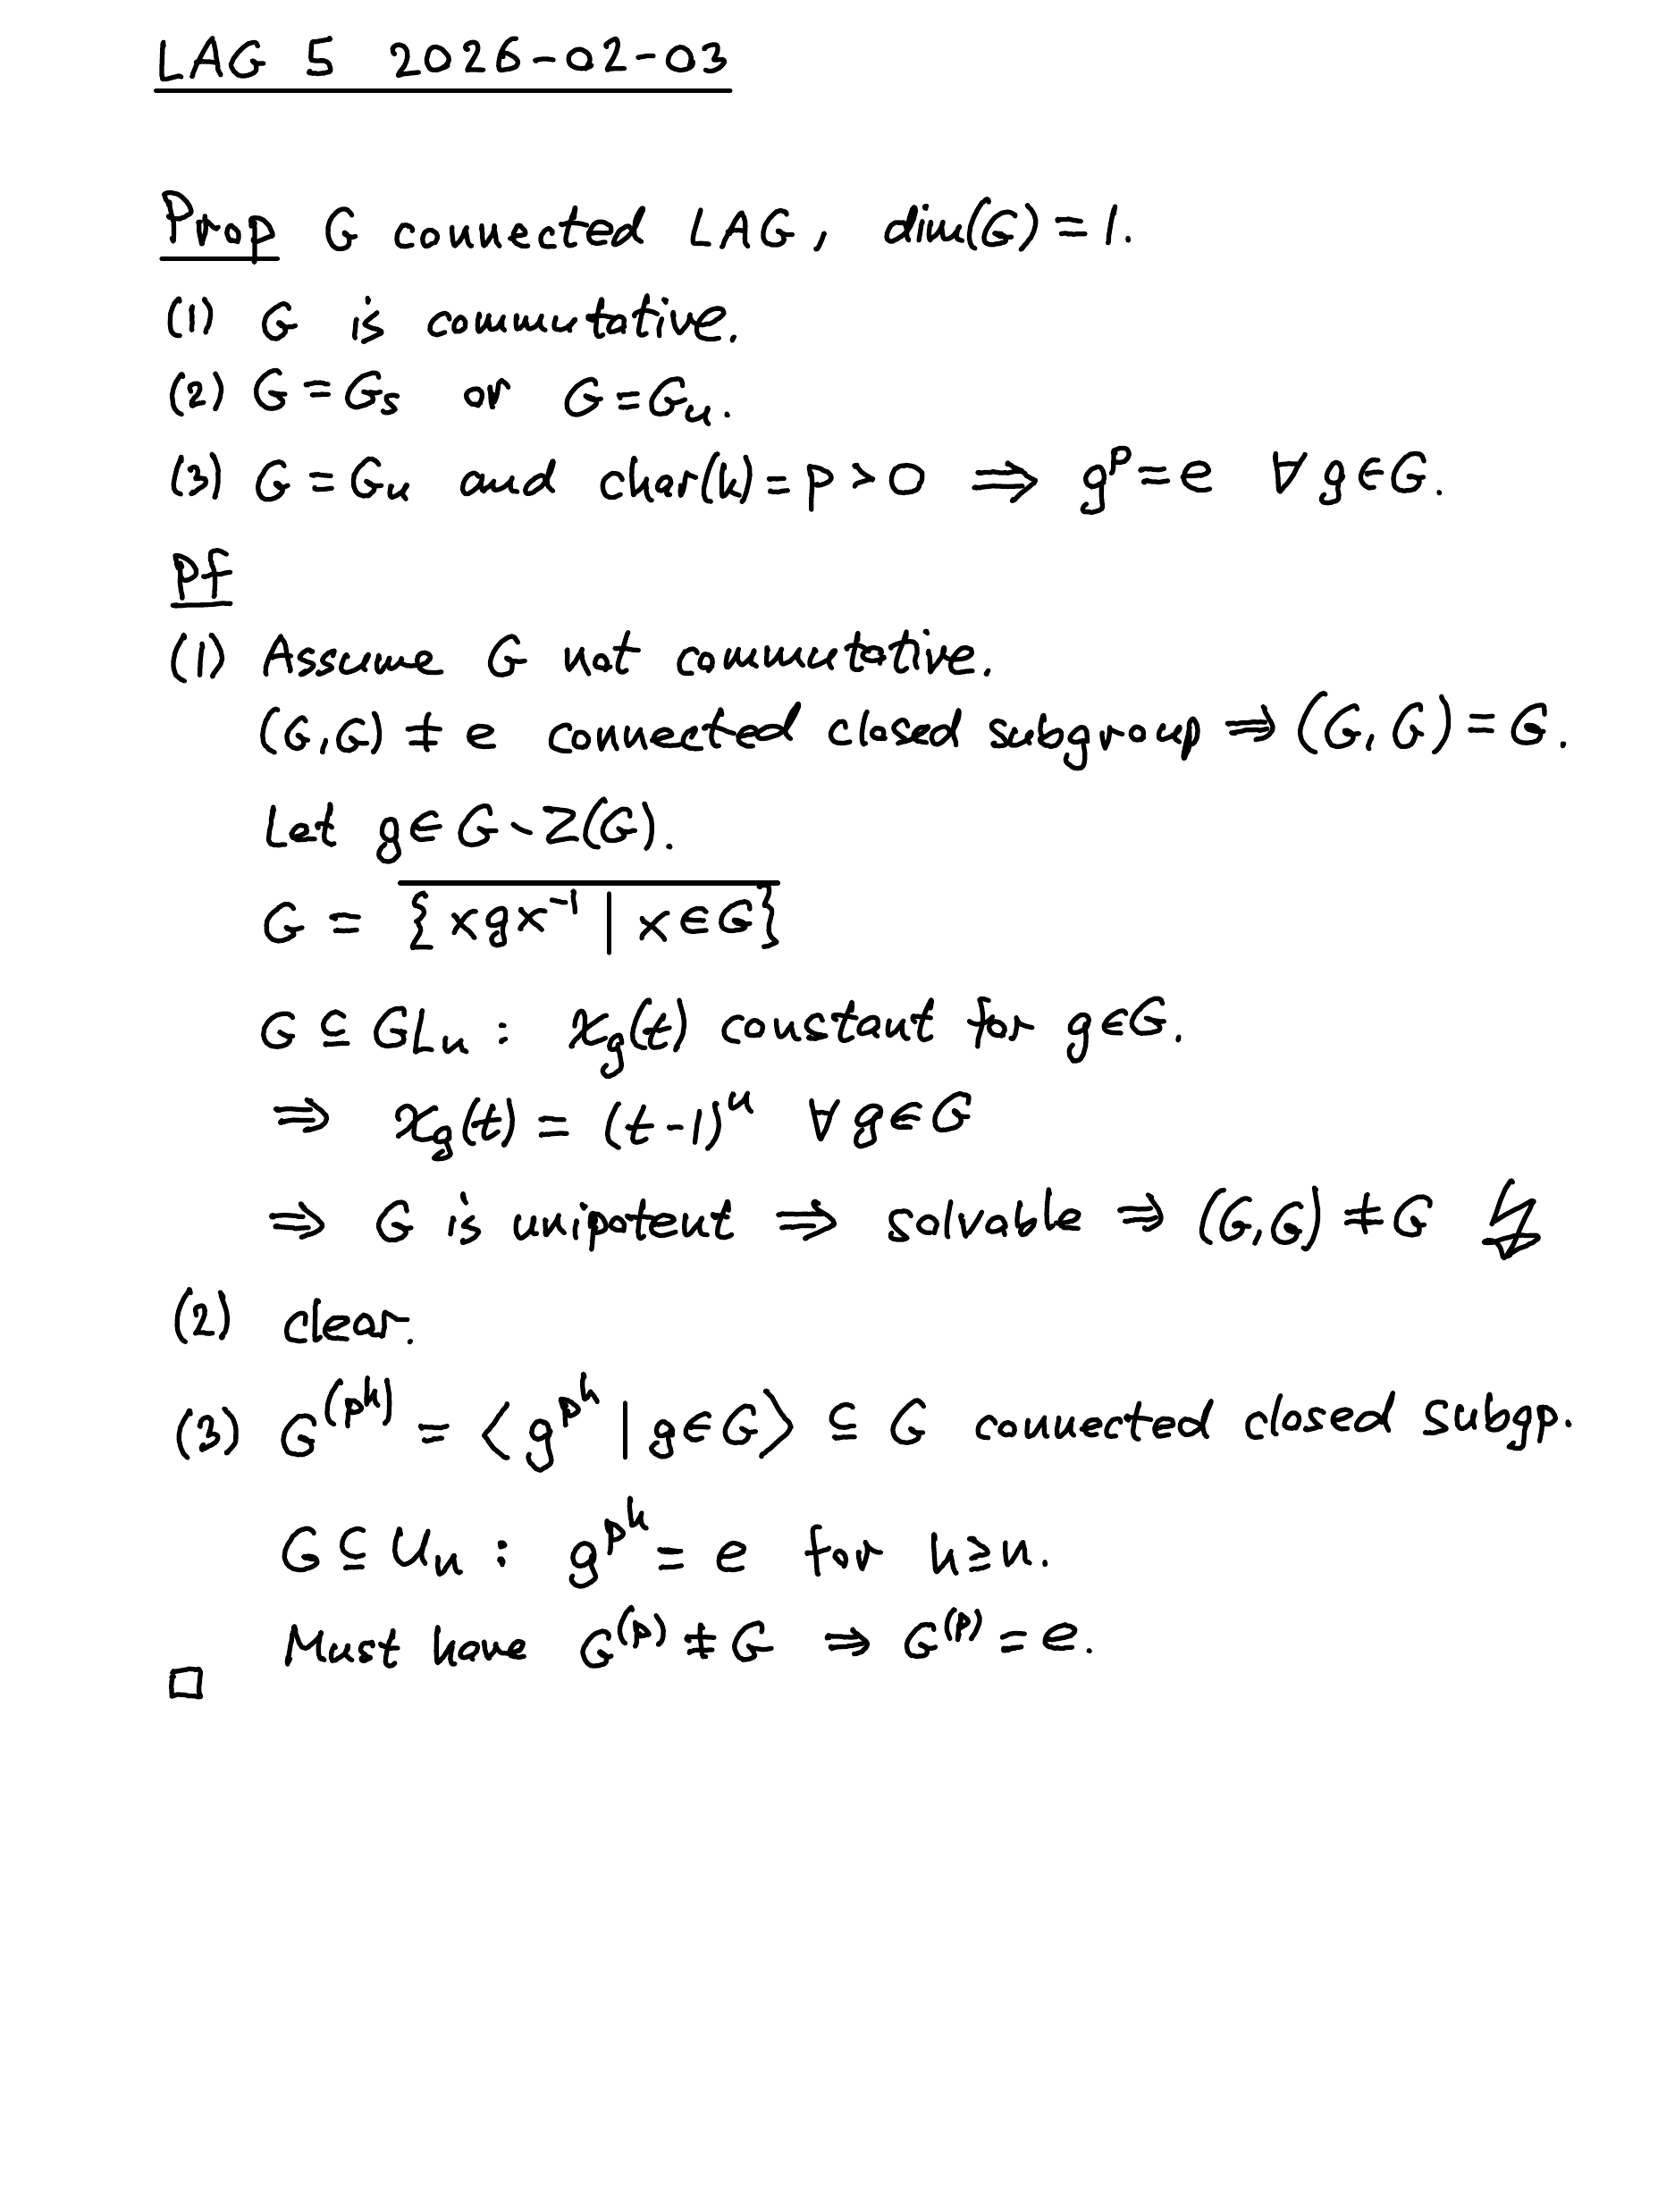 LAG 5 2026-02-03
Prop G connected LAG, dim(G) = 1.
(1) G is commutative.
(2) G = Gₛ or G = Gᵤ.
(3) G = Gᵤ and char(k) = p > 0 ⟹ gᵖ = e ∀ g ∈ G.
Pf
(1) Assume G not commutative.
(G,G) ≠ e connected closed subgroup ⟹ (G,G) = G.
Let g ∈ G∖Z(G).
G = \overline{{xgx⁻¹ | x ∈ G}}
G ⊆ GLₙ : χ_g(t) constant for g ∈ G.
⟹ χ_g(t) = (t-1)ⁿ ∀ g ∈ G
⟹ G is unipotent ⟹ solvable ⟹ (G,G) ≠ G ↯
(2) clear.
(3) G^(p^h) = ⟨g^{p^h} | g ∈ G⟩ ⊆ G connected closed subgp.
G ⊆ Uₙ : g^{p^h} = e for h ≥ n.
Must have G^(p) ≠ G ⟹ G^(p) = e.
□